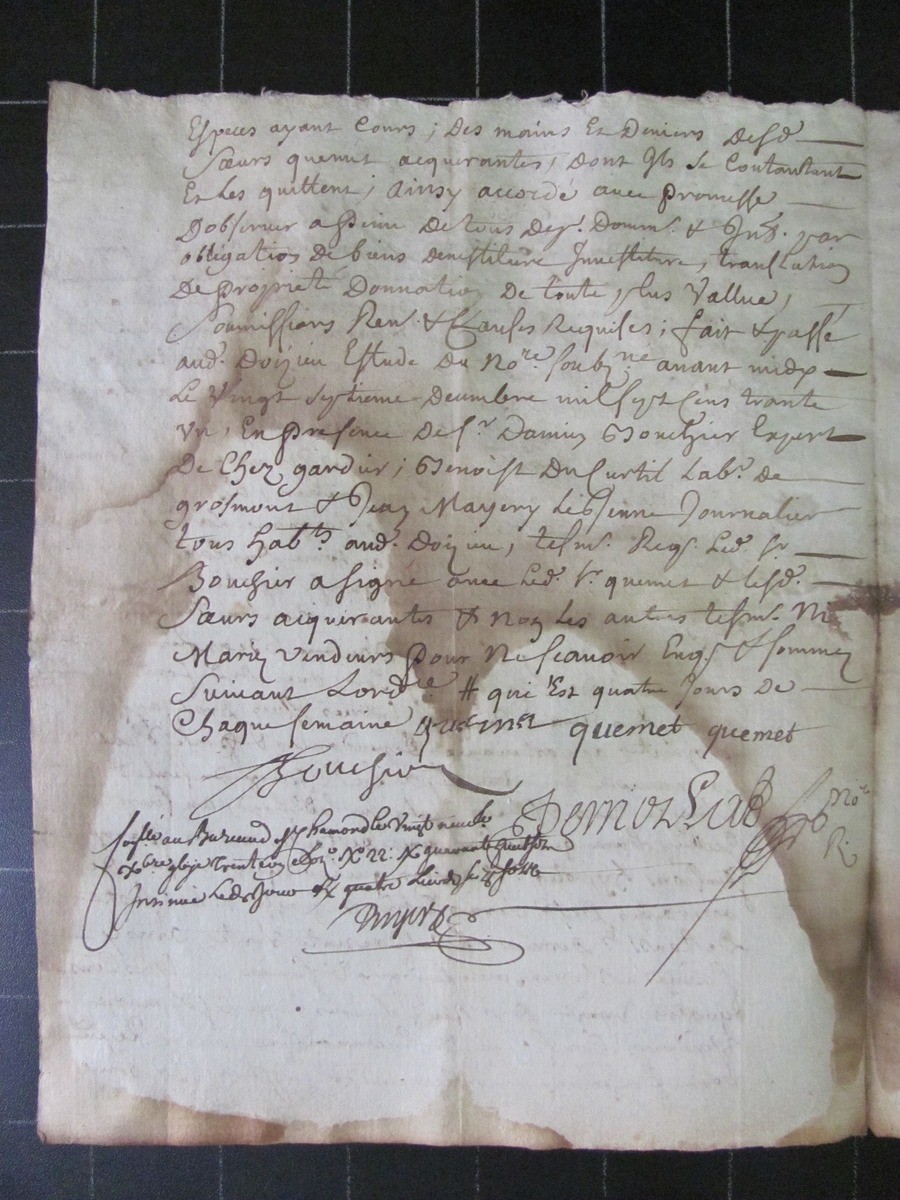 Especes ayant Cours ; Des mains Et Deniers Desd.
Sœurs quemet acquerantes, Dont Ils se Contantent
Et Les quittent ; ainsy accordé avec promesse
Dobserver a peine De tous Dep. Domm. & Int. par
obligation De biens devestiture Investiture, translation
De proprieté Donnation De toute plus Vallue,
Soumissions Ren. & Clauses Requises ; fait & passé
aud. Doizieu Estude Du Nore. soubzne. avant midy
Le Vingt Septieme Decembre mil sept Cens trante
Un, En presence De sr. Damien Bouchier Expert
De Chez gardier ; Benoist Du Curtil Labr. de
grosmont & Jean Mayery Le Jeune Journalier
tous habts. aud. Doizieu, tesm. Reqs. Led. sr.
Bouchier a signé avec Led. sr. quemet & Lesd.
Sœurs acquerantes & Non Les autres tesm. Ni
Mariez Vendeurs pour Ne scavoir Enqs. & sommez
Suivant Lordce. # qui Est quatre Jours De
Chaque semaine quemet quemet quemet
Bouchier
au Bureau de St. Chamond le Vingt neuf
xbre trente un fo. 22
Insinué Led. Jour quatre Livres